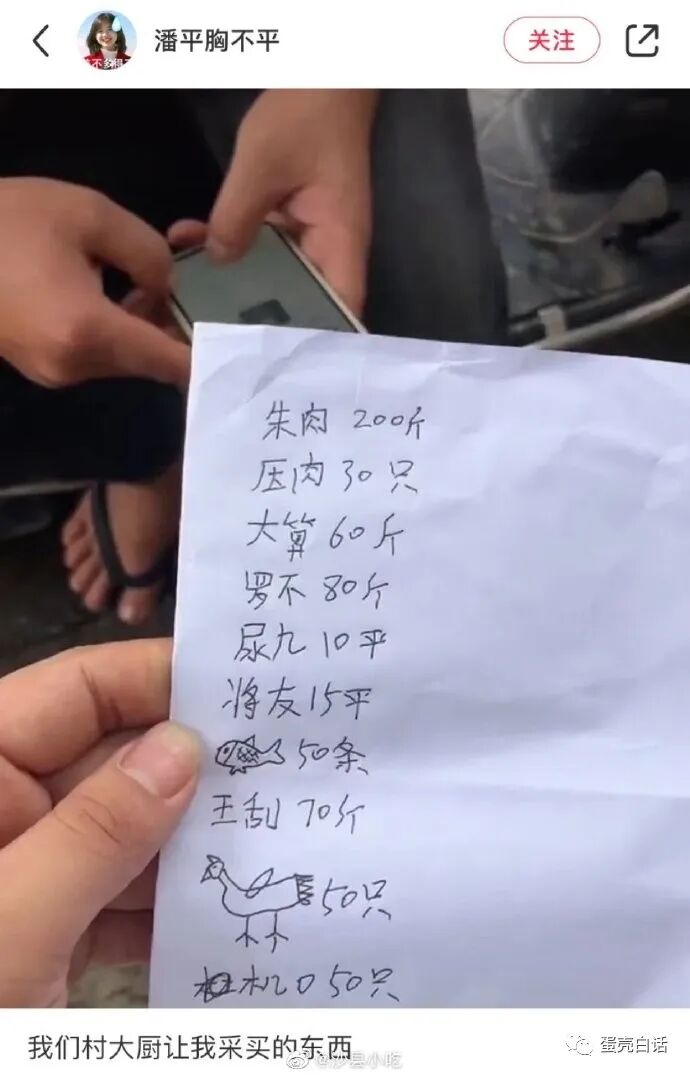 潘平胸不平
关注
不多得
朱肉 200斤
压肉 30只
大算 60斤
罗不 80斤
尿九 10平
将友 15平
50条
王刮 70斤
50只
机 50只
我们村大厨让我采买的东西
@沙县小吃
蛋壳白话